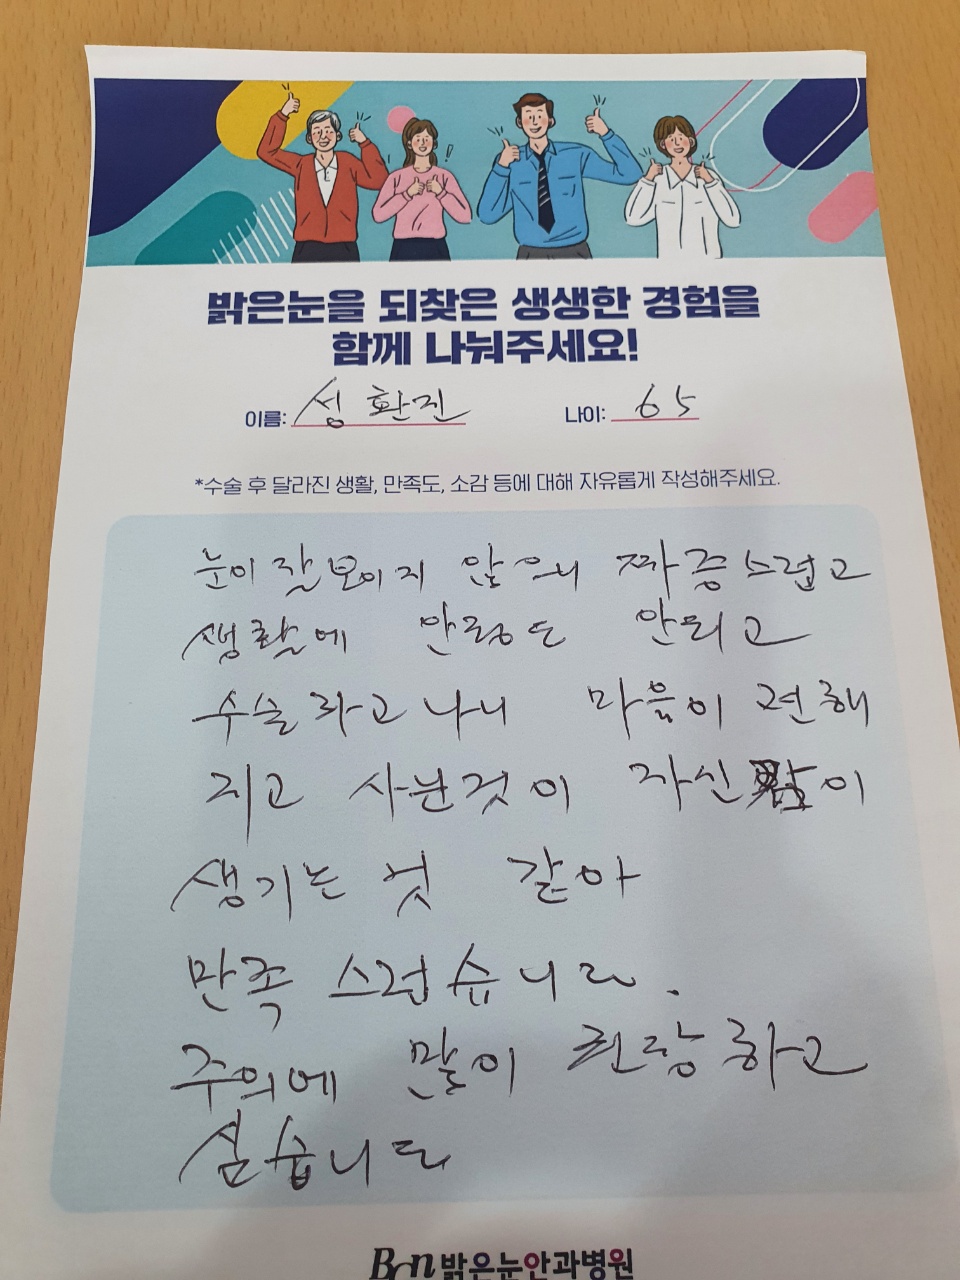 밝은눈을 되찾은 생생한 경험을
함께 나눠주세요!
이름: 성환진 나이: 65
*수술 후 달라진 생활, 만족도, 소감 등에 대해 자유롭게 작성해주세요.
눈이 잘 보이지 않으니 짜증스럽고
생활에 안정도 안되고
수술하고 나니 마음이 편해
지고 사는것이 자신감이
생기는 것 같아
만족 스럽습니다.
주의에 많이 권장하고
싶습니다
BGN 밝은눈안과병원